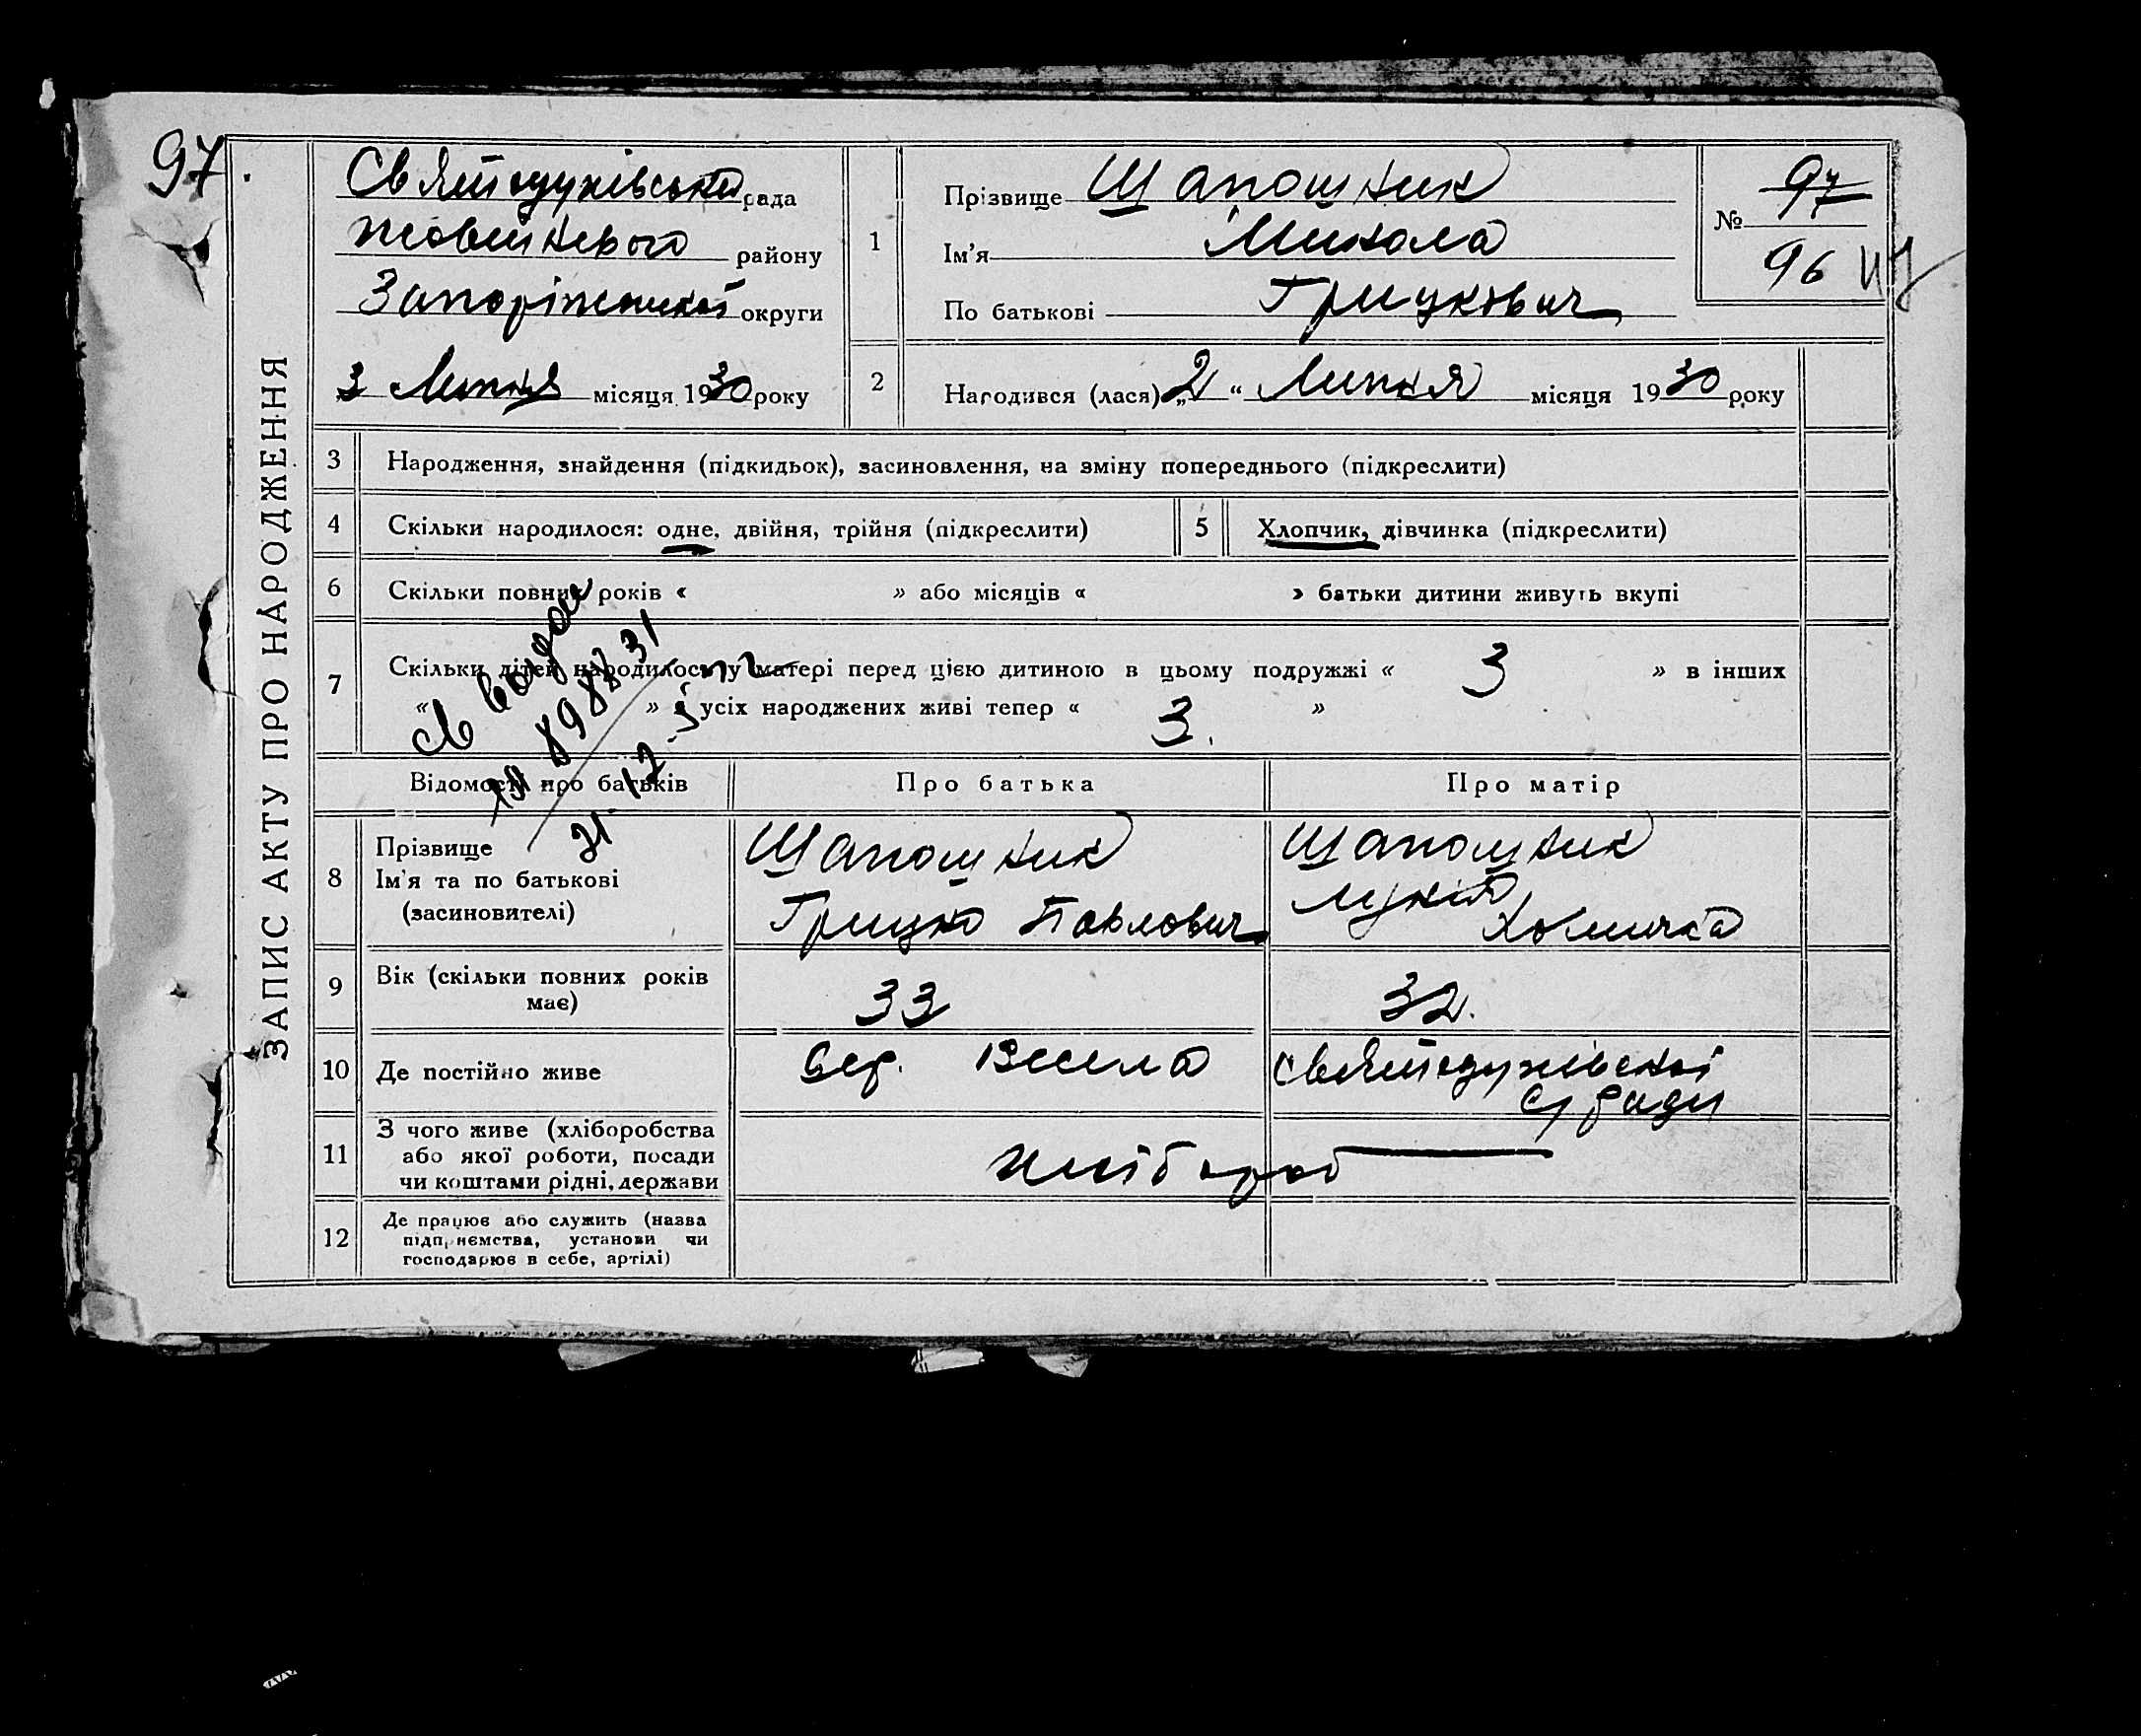 97.
ЗАПИС АКТУ ПРО НАРОДЖЕННЯ
Святодухівська рада
Жовтневого району
Запоріжської округи
3 Липня місяця 1930 року
1
Прізвище Шапошник
Ім'я Микола
По батькові Грицкович
№ 97
96
2
Народився (лася) „2“ Липня місяця 1930 року
3 Народження, знайдення (підкидьок), засиновлення, на зміну попереднього (підкреслити)
4 Скільки народилося: одне, двійня, трійня (підкреслити)
5 Хлопчик, дівчинка (підкреслити)
6 Скільки повних років « » або місяців « » батьки дитини живуть вкупі
7 Скільки дітей народилось у матері перед цією дитиною в цьому подружжі « 3 » в інших
« » з усіх народжених живі тепер « 3. »
Відомості про батьків
Про батька
Про матір
8 Прізвище
Ім'я та по батькові
(засиновителі)
Шапошник
Грицко Павлович
Шапошник
Лукія
Хомична
9 Вік (скільки повних років
має)
33
32.
10 Де постійно живе
Весела
Святодухівської
с/ ради
11 З чого живе (хліборобства
або якої роботи, посади
чи коштами рідні, держави
хлібороб
12 Де працює або служить (назва
підприємства, установи чи
господарює в себе, артілі)